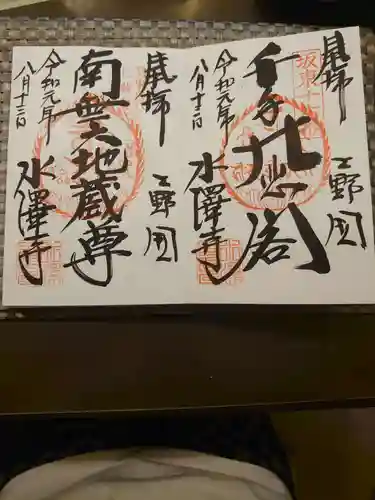 奉拝
上野国
千手大悲閣
令和元年
八月十三日
水澤寺
奉拝
上野国
南無地蔵尊
令和元年
八月十三日
水澤寺